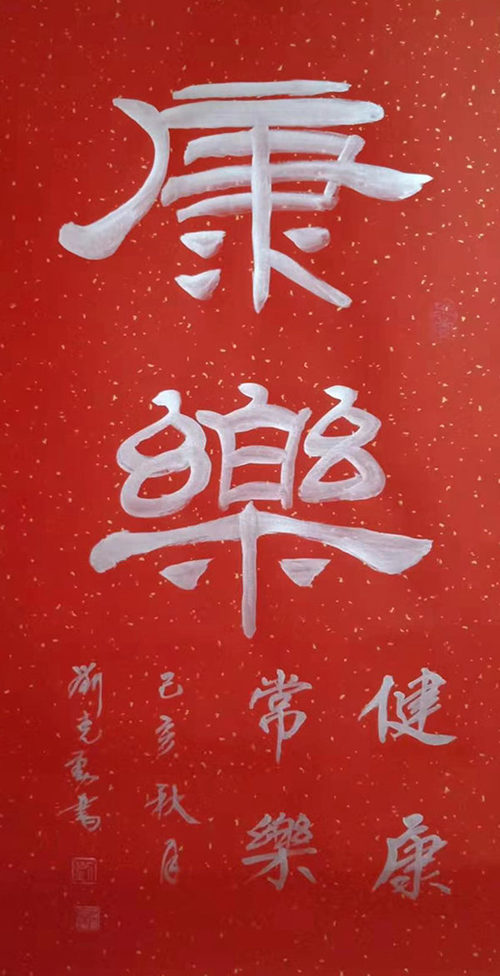 康樂
健康
常樂
己亥秋月